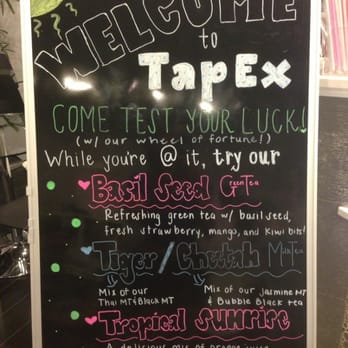 WELCOME
to
TapEx
COME TEST YOUR LUCK!
(w/ our wheel of fortune!)
While you're @ it, try our
Basil Seed GreenTea
Refreshing green tea w/ basil seed,
fresh strawberry, mango, and kiwi bits!
Tiger/Cheetah MilkTea
Mix of our
Thai MT & Black MT
Mix of our Jasmine MT
& Bubble Black tea
Tropical Sunrise
A delicious mix of orange juice